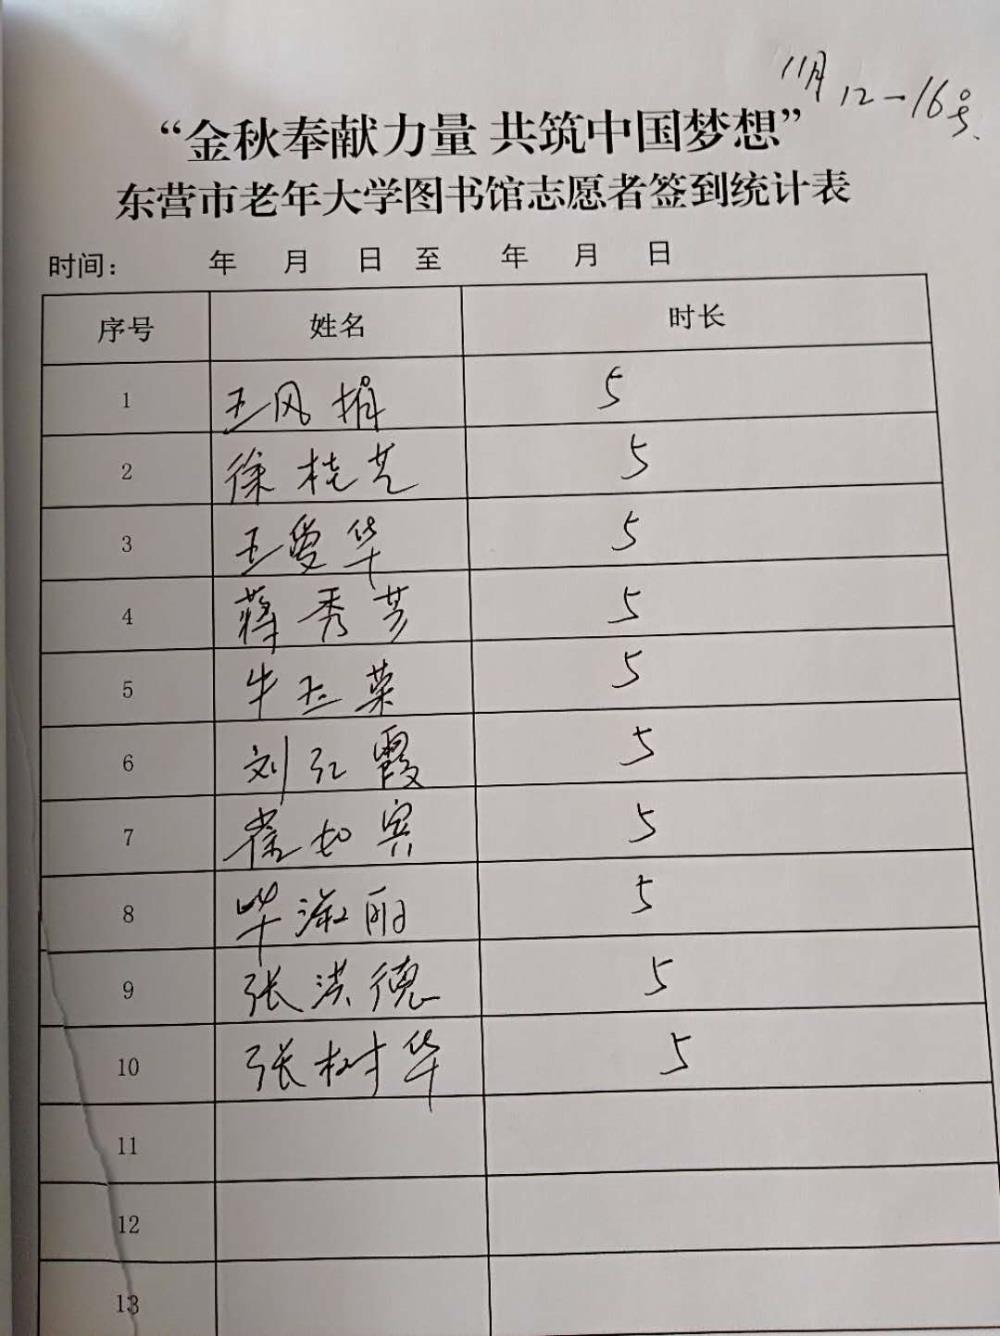 11月12-16号.
“金秋奉献力量 共筑中国梦想”
东营市老年大学图书馆志愿者签到统计表
时间： 年 月 日 至 年 月 日
序号 姓名 时长
1 王风娟 5
2 徐桂芝 5
3 王爱华 5
4 蒋秀芳 5
5 牛玉菜 5
6 刘红霞 5
7 崔如宾 5
8 毕淑丽 5
9 张洪德 5
10 张树华 5
11
12
13